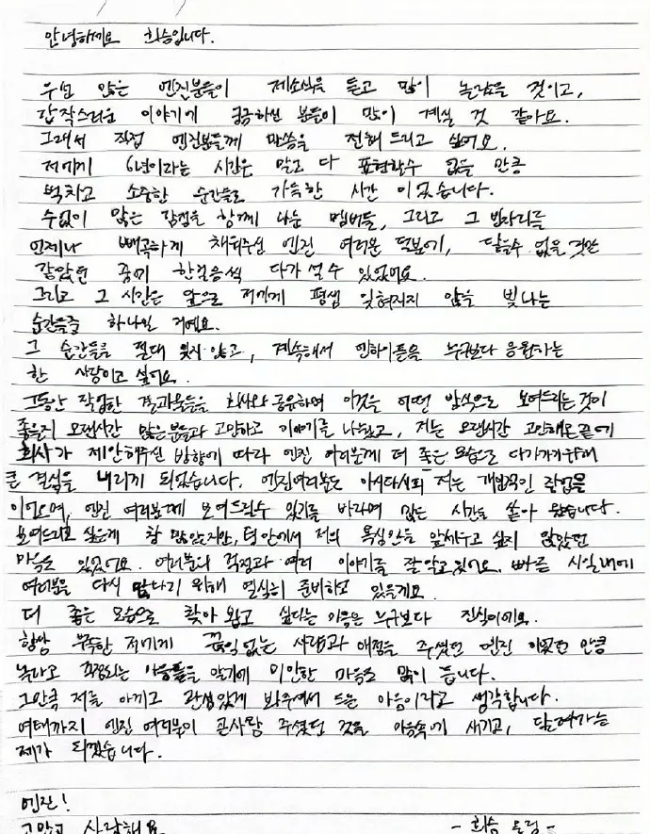 안녕하세요 희승입니다.
우선 많은 엔진분들이 제소식을 듣고 많이 놀랐을 것이고,
갑작스러운 이야기에 궁금하신 분들이 많이 계실 것 같아요.
그래서 직접 엔진분들께 말씀을 전해 드리고 싶어요.
저에게 6년이라는 시간은 말로 다 표현할수 없을 만큼
벅차고 소중한 순간들로 가득한 시간 이었습니다.
수없이 많은 감정을 함께 나눈 멤버들, 그리고 그 빈자리를
언제나 빼곡하게 채워주신 엔진 여러분 덕분에, 닿을수 없을 것만
같았던 꿈에 한걸음씩 다가 설 수 있었어요.
그리고 그 시간은 앞으로 저에게 평생 잊혀지지 않을 빛나는
순간들중 하나일 거예요.
그 순간들을 절대 잊지 않고, 계속해서 엔하이픈을 누구보다 응원하는
한 사람이고 싶어요.
그동안 작업한 결과물들을 회사와 공유하며 이것을 어떤 방식으로 보여드리는것이
좋을지 오랜시간 많은분들과 고민하고 이야기를 나눴고, 저는 오랜시간 고민해온끝에
회사가 제안해주신 방향에 따라 엔진 여러분께 더 좋은 모습으로 다가가기위해
큰 결심을 내리게 되었습니다. 엔진여러분도 아시다시피 저는 개인적인 작업을
이어오며, 엔진 여러분께 보여드릴수 있기를 바라며 많은 시간을 쏟아 왔습니다.
보여드리고 싶은게 참 많았지만, 팀안에서 저의 욕심만을 앞세우고 싶지 않았던
마음도 있었어요. 여러분의 걱정과 여러 이야기를 잘알고있어요. 빠른 시일내에
여러분을 다시 만나기 위해 열심히 준비하고 있을게요.
더 좋은 모습으로 찾아 뵙고 싶다는 마음은 누구보다 진심이에요.
항상 부족한 저에게 끊임없는 사랑과 애정을 주셨던 엔진 이었던 만큼
놀라고 걱정되는 마음들을 알기에 미안한 마음도 많이 듭니다.
그만큼 저를 아끼고 관심있게 봐주셔서 드는 마음이라고 생각합니다.
여태까지 엔진 여러분이 큰사랑 주셨던 것을 마음속에 새기고, 달려가는
제가 되겠습니다.
엔진!
고맙고 사랑해요
- 희승 올림 -